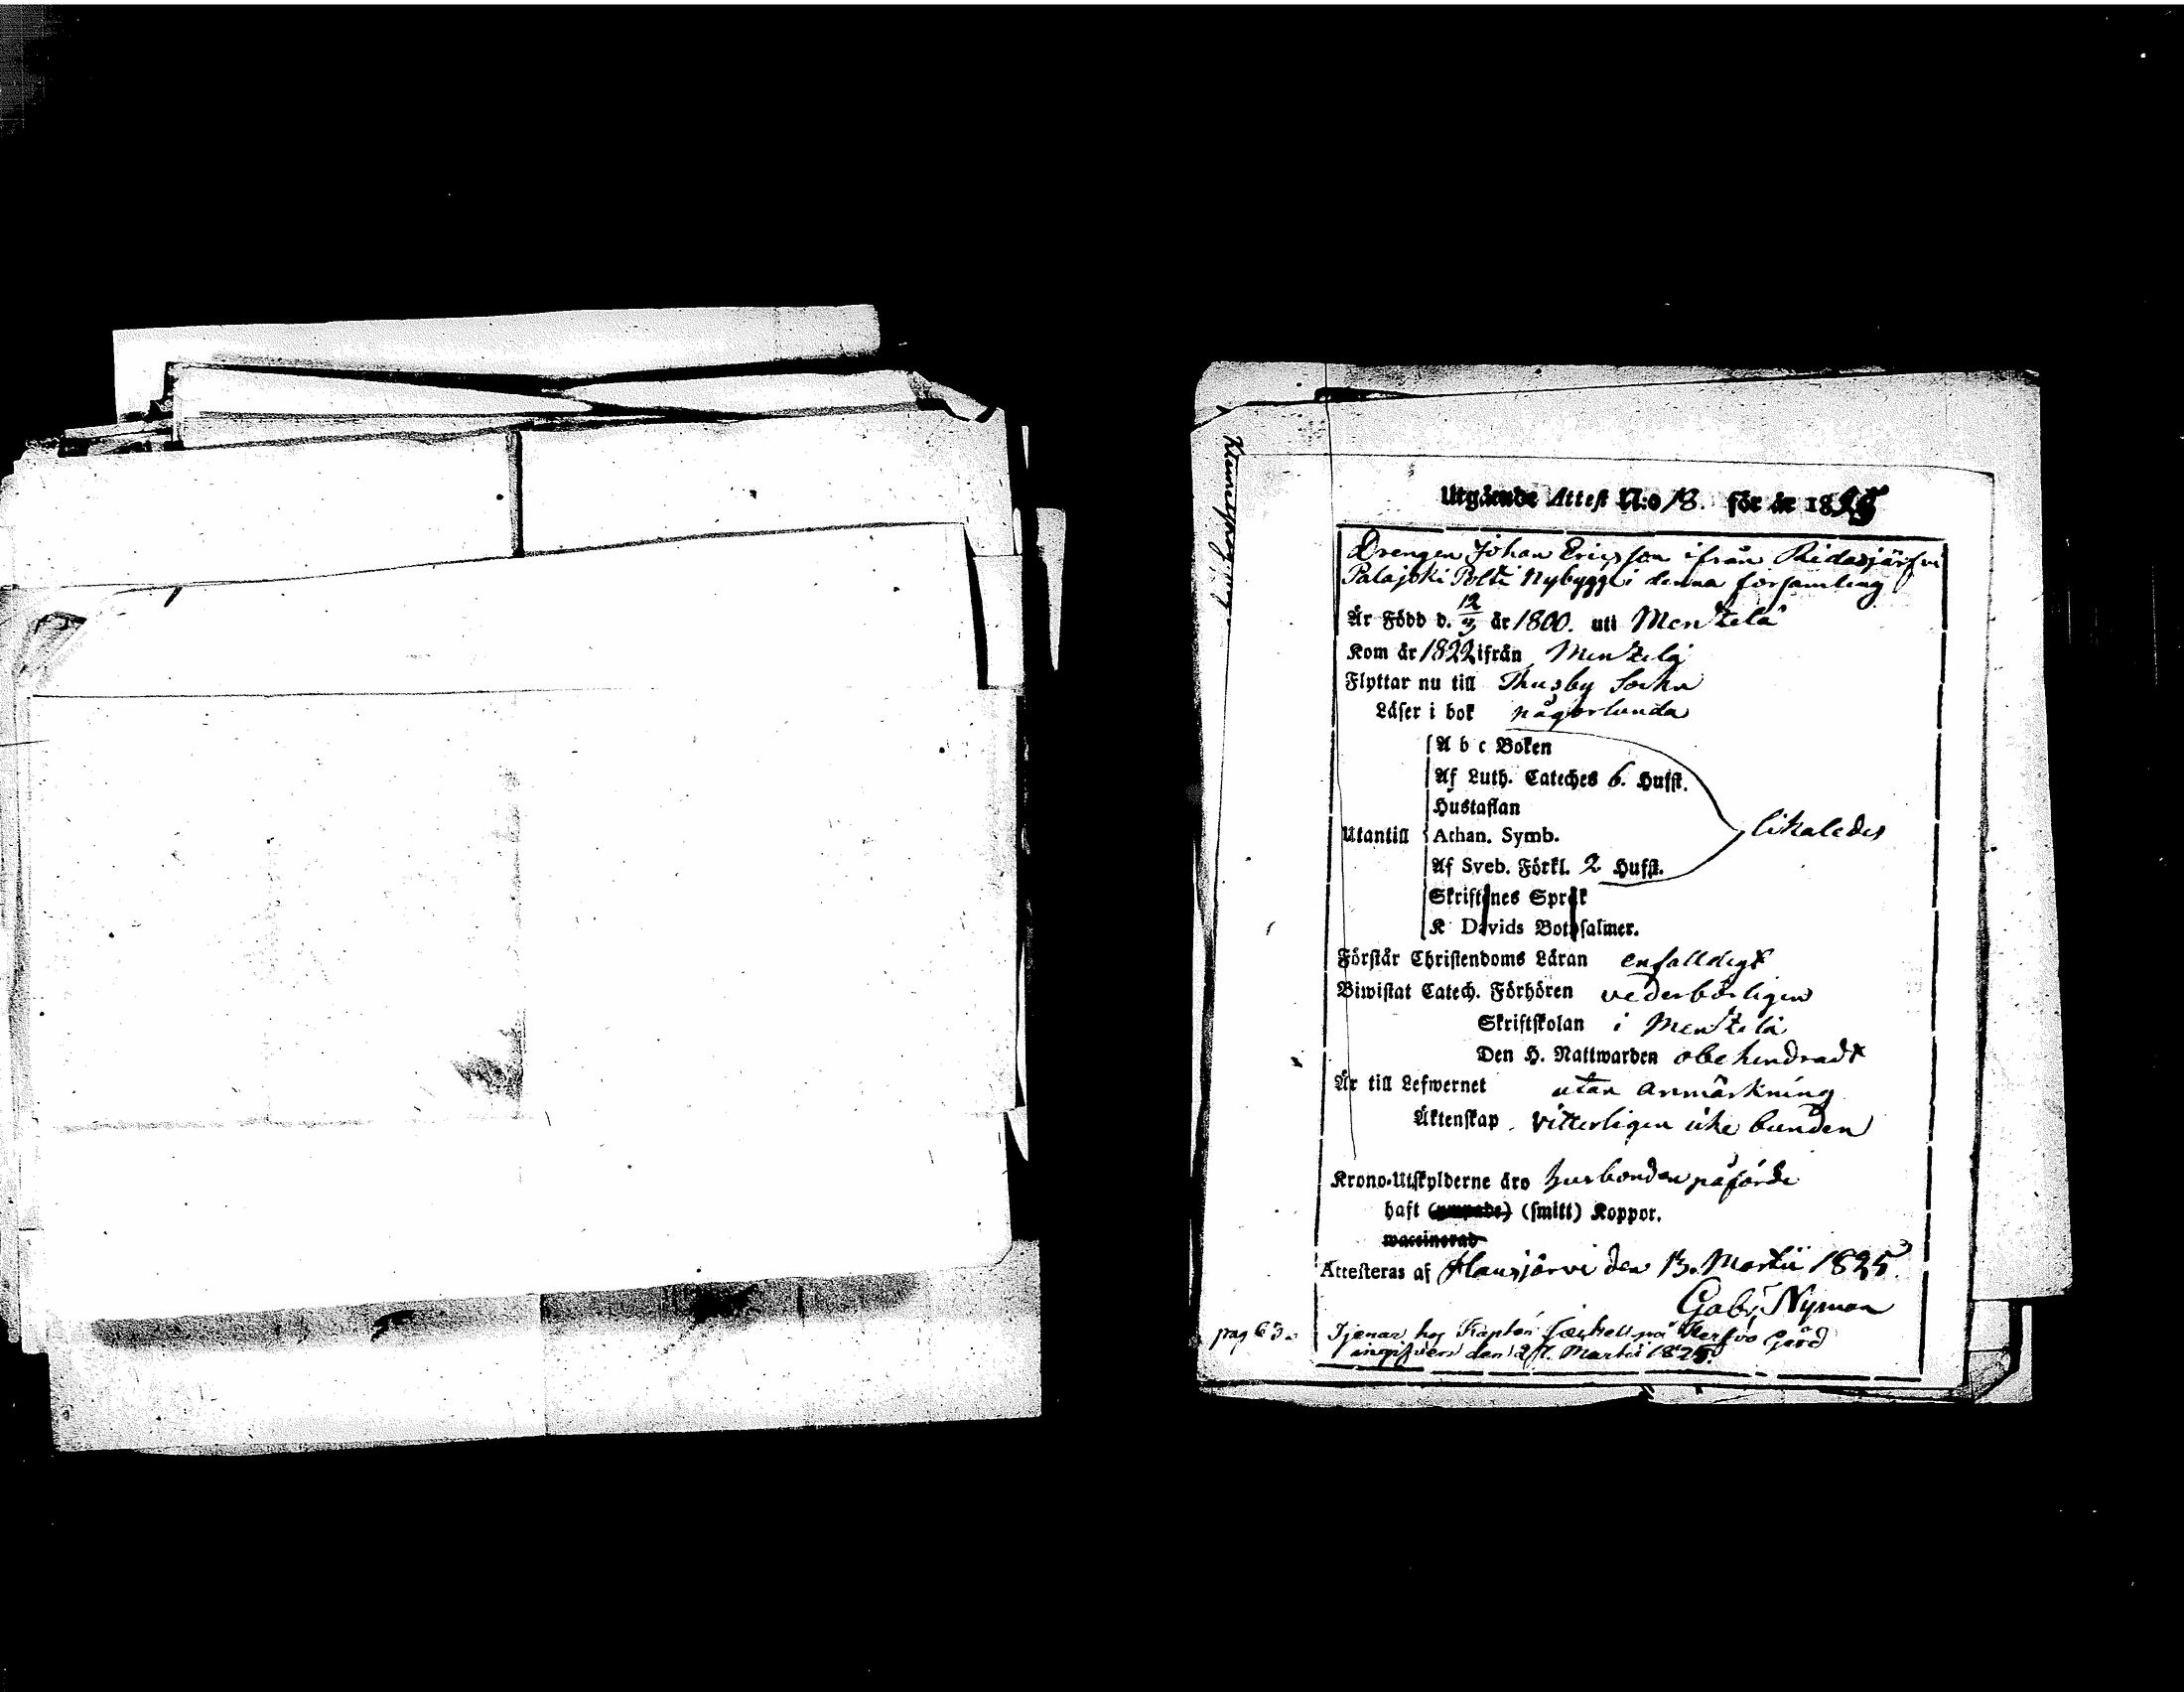 Utgående Attest N:o 18. för år 1825
Drengen Johan Ericsson ifrån Ridasjärfvi
Palajoki Polti Nybygge i denna församling
Är Född d. 12/3 år 1800. uti Mentzelä
Kom år 1822 ifrån Mentzelä
Flyttar nu till Thusby Sockn
Läser i bok någorlunda
A b c Boken
Af Luth. Cateches 6. Hufst.
Hustaflan
Utantill Athan. Symb. likaledes
Af Sveb. Förkl. 2 Hufst.
Skriftenes Språk
K Davids Botpsalmer.
Förstår Christendoms Läran enfalldigt
Biwistat Catech. Förhören vederbörligen
Skriftskolan i Mentzelä
Den H. Nattwarden obehindradt
Är till Lefwernet utan anmärkning
Äktenskap vitterligen icke bunden
Krono-Utskylderne äro husbonden påförde
haft (ympade) (smitt) Koppor.
waccinerad
Attesteras af Hausjärvi den 13. Martii 1825.
Gabr. Nyman
pag 63. Tjenar hos Kapten på Kerfvo Gård
ingifven den Martii 1825.